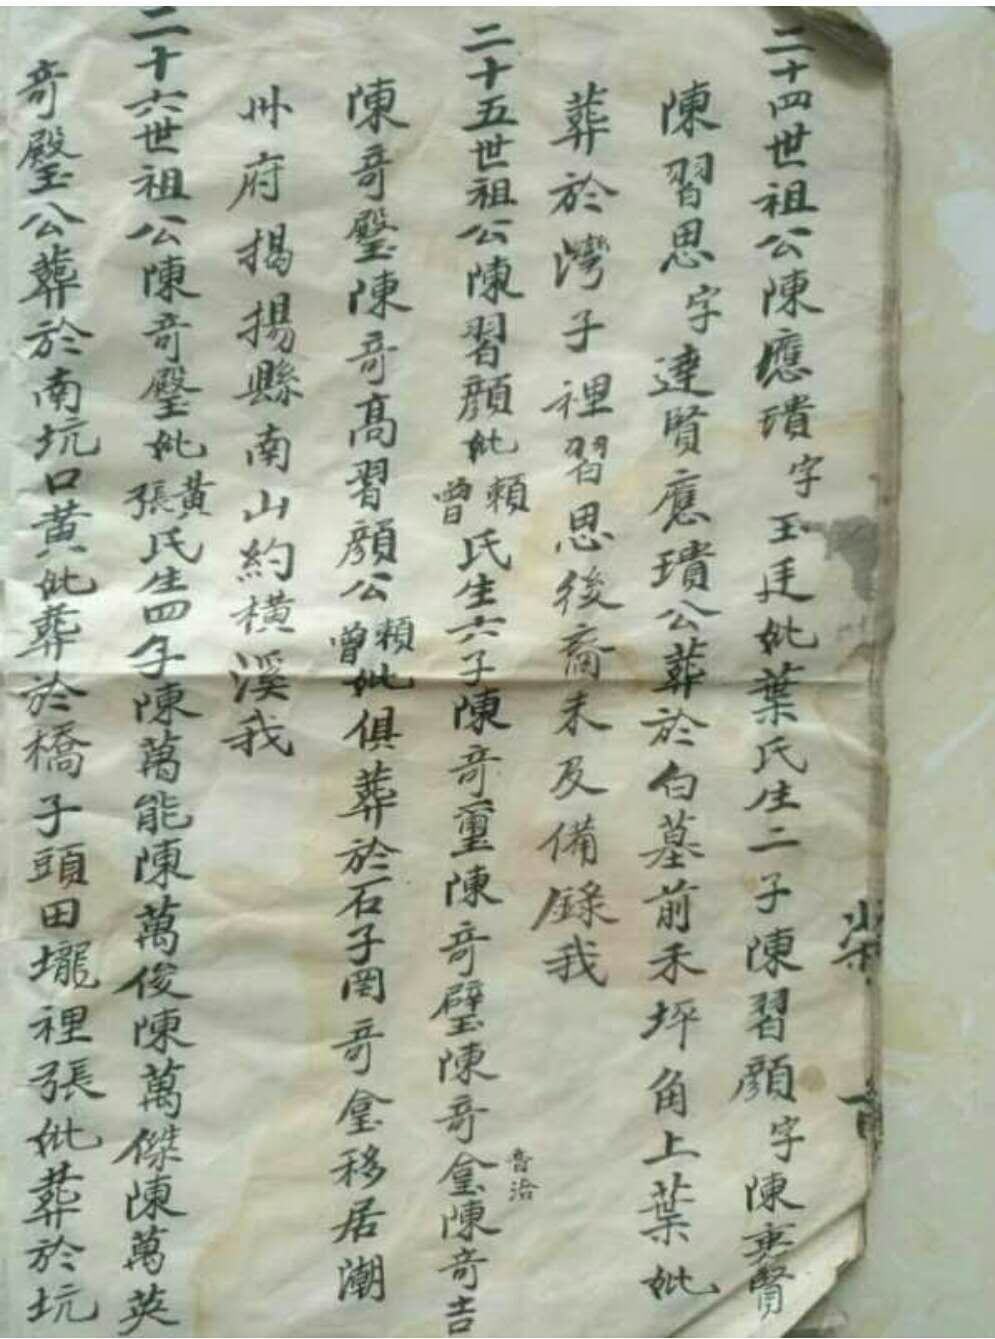 二十四世祖公陳應璝字玉廷妣葉氏生二子陳習顔字陳秉賢
陳習思字達賢應璝公葬於白墓前禾坪角上葉妣
葬於灣子裡習思後裔未及備錄我
二十五世祖公陳習顔妣賴曾氏生六子陳竒璽陳竒璧陳竒㿽音治陳竒吉
陳竒璧陳竒高習顔公賴曾妣俱葬於石子岡竒㿽移居潮
州府揭揚縣南山約横溪我
二十六世祖公陳竒璧妣黄張氏生四子陳萬能陳萬俊陳萬傑陳萬英
竒璧公葬於南坑口黄妣葬於橋子頭田壠裡張妣葬於坑